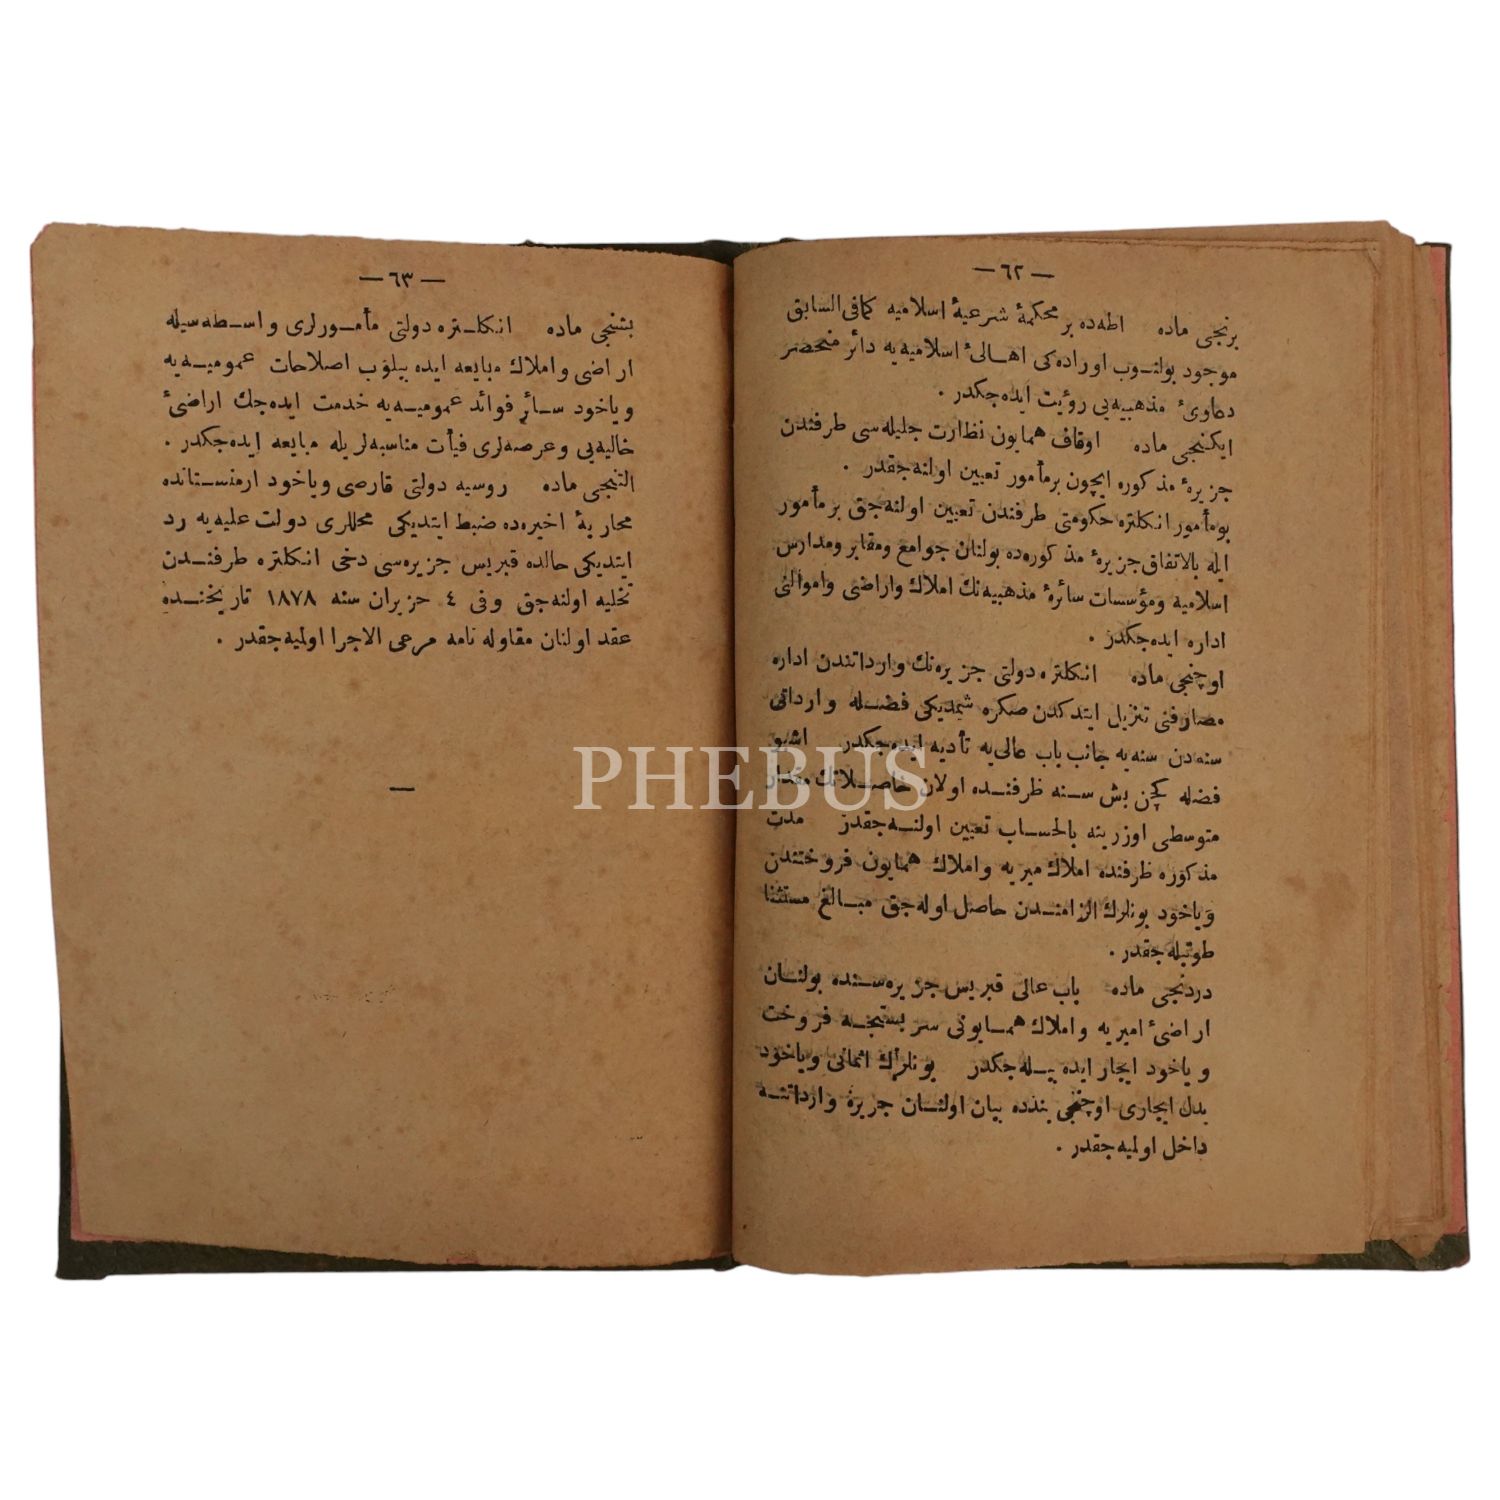 — ٦٢ —
برنجی ماده اطه‌ده بر محكمهٔ شرعیهٔ اسلامیه كمافی السابق
موجود بولنوب اوراده‌كی اهالیٔ اسلامیه‌یه دائر منحصر
دعاویٔ مذهبیه‌یی رؤیت ایده‌جكدر .
ایكنجی ماده اوقاف همایون نظارت جلیله‌سی طرفندن
جزیرهٔ مذكوره ایچون بر مأمور تعیین اولنه‌جقدر .
بو مأمور انكلتره حكومتی طرفندن تعیین اولنه‌جق بر مأمور
ایله بالاتفاق جزیرهٔ مذكوره‌ده بولنان جوامع ومقابر ومدارس
اسلامیه ومؤسسات سائرهٔ مذهبیه‌نك املاك واراضی واموالنی
اداره ایده‌جكدر .
اوچنجی ماده انكلتره دولتی جزیره‌نك وارداتندن اداره
مصارفنی تنزیل ایتدكدن صكره شمدیكی فضله وارداتی
سنه‌دن سنه‌یه جانب باب عالی‌یه تأدیه ایده‌جكدر اشبو
فضله كچن بش سنه ظرفنده اولان حاصلاتك مقدار
متوسطی اوزرینه بالحساب تعیین اولنه‌جقدر مدت
مذكوره ظرفنده املاك میریه واملاك همایون فروختندن
ویاخود بونلرك الزامندن حاصل اوله‌جق مبالغ مستثنا
طوتیله‌جقدر .
دردنجی ماده باب عالی قبریس جزیره‌سنده بولنان
اراضیٔ امیریه واملاك همایونی سربستجه فروخت
ویاخود ایجار ایده بیله‌جكدر بونلرك اثمانی ویاخود
بدل ایجاری اوچنجی بندده بیان اولنان جزیره وارداتنه
داخل اولمیه‌جقدر .
— ٦٣ —
بشنجی ماده انكلتره دولتی مأمورلری واسطه‌سیله
اراضی واملاك مبایعه ایده بیلوب اصلاحات عمومیه‌یه
ویاخود سائر فوائد عمومیه‌یه خدمت ایده‌جك اراضیٔ
خالیه‌یی وعرصه‌لری فیأت مناسبه‌لریله مبایعه ایده‌جكدر .
التنجی ماده روسیه دولتی قارصی ویاخود ارمنستانده
محاربهٔ اخیره‌ده ضبط ایتدیكی محللری دولت علیه‌یه رد
ایتدیكی حالده قبریس جزیره‌سی دخی انكلتره طرفندن
تخلیه اولنه‌جق وفی ٤ حزیران سنه ١٨٧٨ تاریخنده
عقد اولنان مقاوله‌نامه مرعی الاجرا اولمیه‌جقدر .
PHEBUS